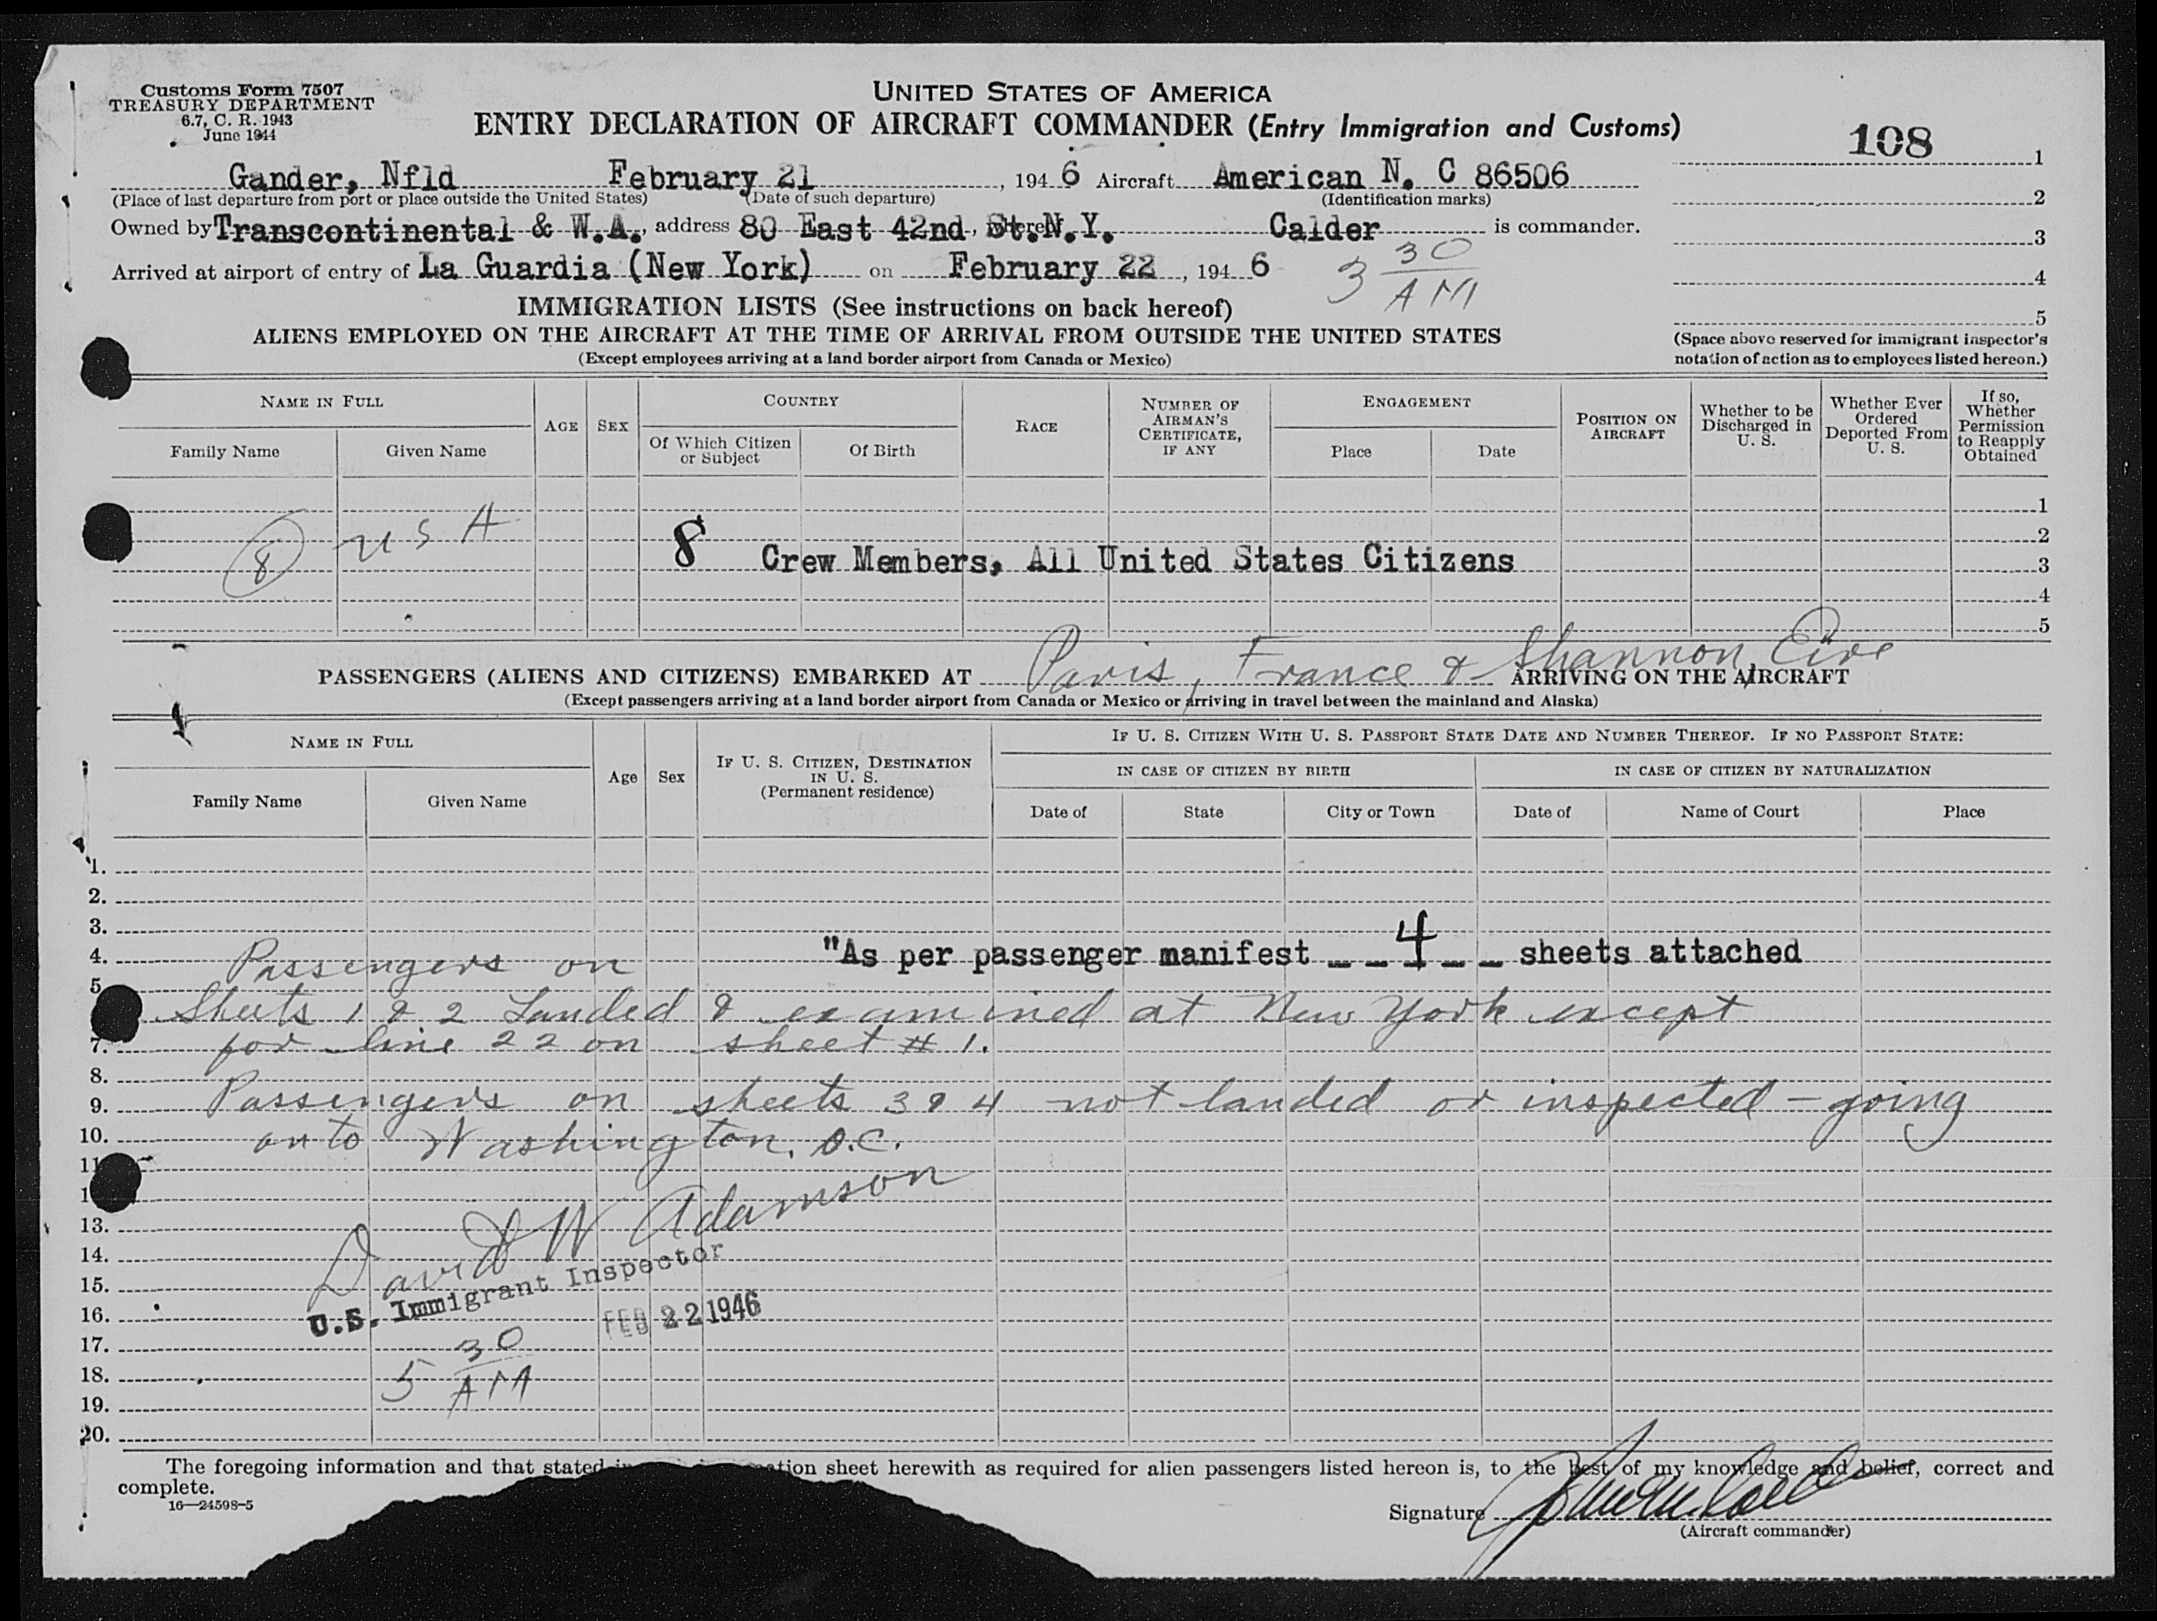 Customs Form 7507
TREASURY DEPARTMENT
6.7, C. R. 1943
June 1944
UNITED STATES OF AMERICA
ENTRY DECLARATION OF AIRCRAFT COMMANDER (Entry Immigration and Customs)
108
Gander, Nfld February 21, 1946 Aircraft American N. C 86506
(Place of last departure from port or place outside the United States) (Date of such departure) (Identification marks)
Owned by Transcontinental & W.A., address 80 East 42nd, St. N.Y. Calder is commander.
Arrived at airport of entry of La Guardia (New York) on February 22, 1946 3 30 AM
1
2
3
4
5
(Space above reserved for immigrant inspector's
notation of action as to employees listed hereon.)
IMMIGRATION LISTS (See instructions on back hereof)
ALIENS EMPLOYED ON THE AIRCRAFT AT THE TIME OF ARRIVAL FROM OUTSIDE THE UNITED STATES
(Except employees arriving at a land border airport from Canada or Mexico)
NAME IN FULL
Family Name Given Name
AGE SEX
COUNTRY
Of Which Citizen or Subject Of Birth
RACE
NUMBER OF AIRMAN'S CERTIFICATE, IF ANY
ENGAGEMENT
Place Date
POSITION ON AIRCRAFT
Whether to be Discharged in U. S.
Whether Ever Ordered Deported From U. S.
If so, Whether Permission to Reapply Obtained
1
2
3
4
5
8 USA
8 Crew Members, All United States Citizens
PASSENGERS (ALIENS AND CITIZENS) EMBARKED AT Paris, France & Shannon, Eire ARRIVING ON THE AIRCRAFT
(Except passengers arriving at a land border airport from Canada or Mexico or arriving in travel between the mainland and Alaska)
NAME IN FULL
Family Name Given Name
Age Sex
IF U. S. CITIZEN, DESTINATION IN U. S.
(Permanent residence)
IF U. S. CITIZEN WITH U. S. PASSPORT STATE DATE AND NUMBER THEREOF. IF NO PASSPORT STATE:
IN CASE OF CITIZEN BY BIRTH IN CASE OF CITIZEN BY NATURALIZATION
Date of State City or Town Date of Name of Court Place
1.
2.
3.
4. Passengers on "As per passenger manifest _ _ 4 _ _ sheets attached
5
Sheets 1 & 2 Landed & examined at New York except
7. for line 22 on sheet # 1.
8.
9. Passengers on sheets 3 & 4 not landed or inspected - going
10. on to Washington, D.C.
11
1
13. David W Adamson
14.
15. U.S. Immigrant Inspector
16. FEB 22 1946
17.
18. 5 30 AM
19.
20.
The foregoing information and that stated in tion sheet herewith as required for alien passengers listed hereon is, to the best of my knowledge and belief, correct and
complete.
16—24598-5
Signature
(Aircraft commander)